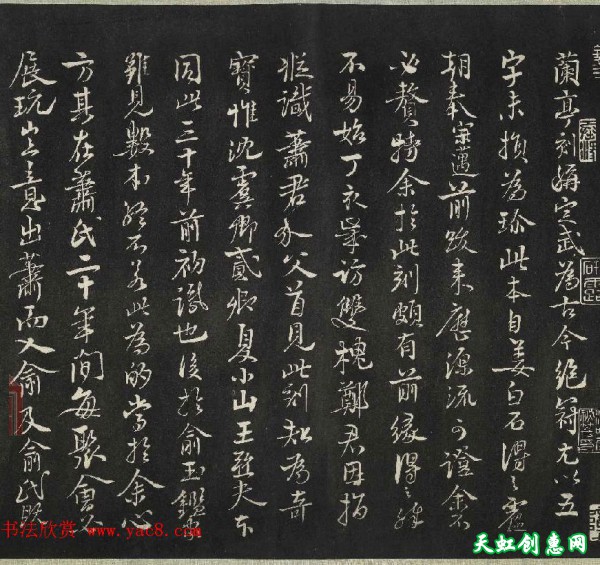 蘭亭刻稱定武為古今絕冠尤以五
字未損為珍此本自姜白石得之
朝奉宗邁前跋來歷源流可證余不
必贅特余於此刻頗有前緣得之雖
不易始丁亥歲訪雙槐鄭君因指
從識蕭君父首見此刻知為奇
寶惟沈虞卿貳卿夏小山王夫本
同此三十年前初識也後於俞玉鑑
雖見數本終不若此為的當於余心
方其在蕭氏二十年間每聚會必
展玩意出蕭而入俞及俞氏
书法欣赏 www.yac8.com
天虹创惠网